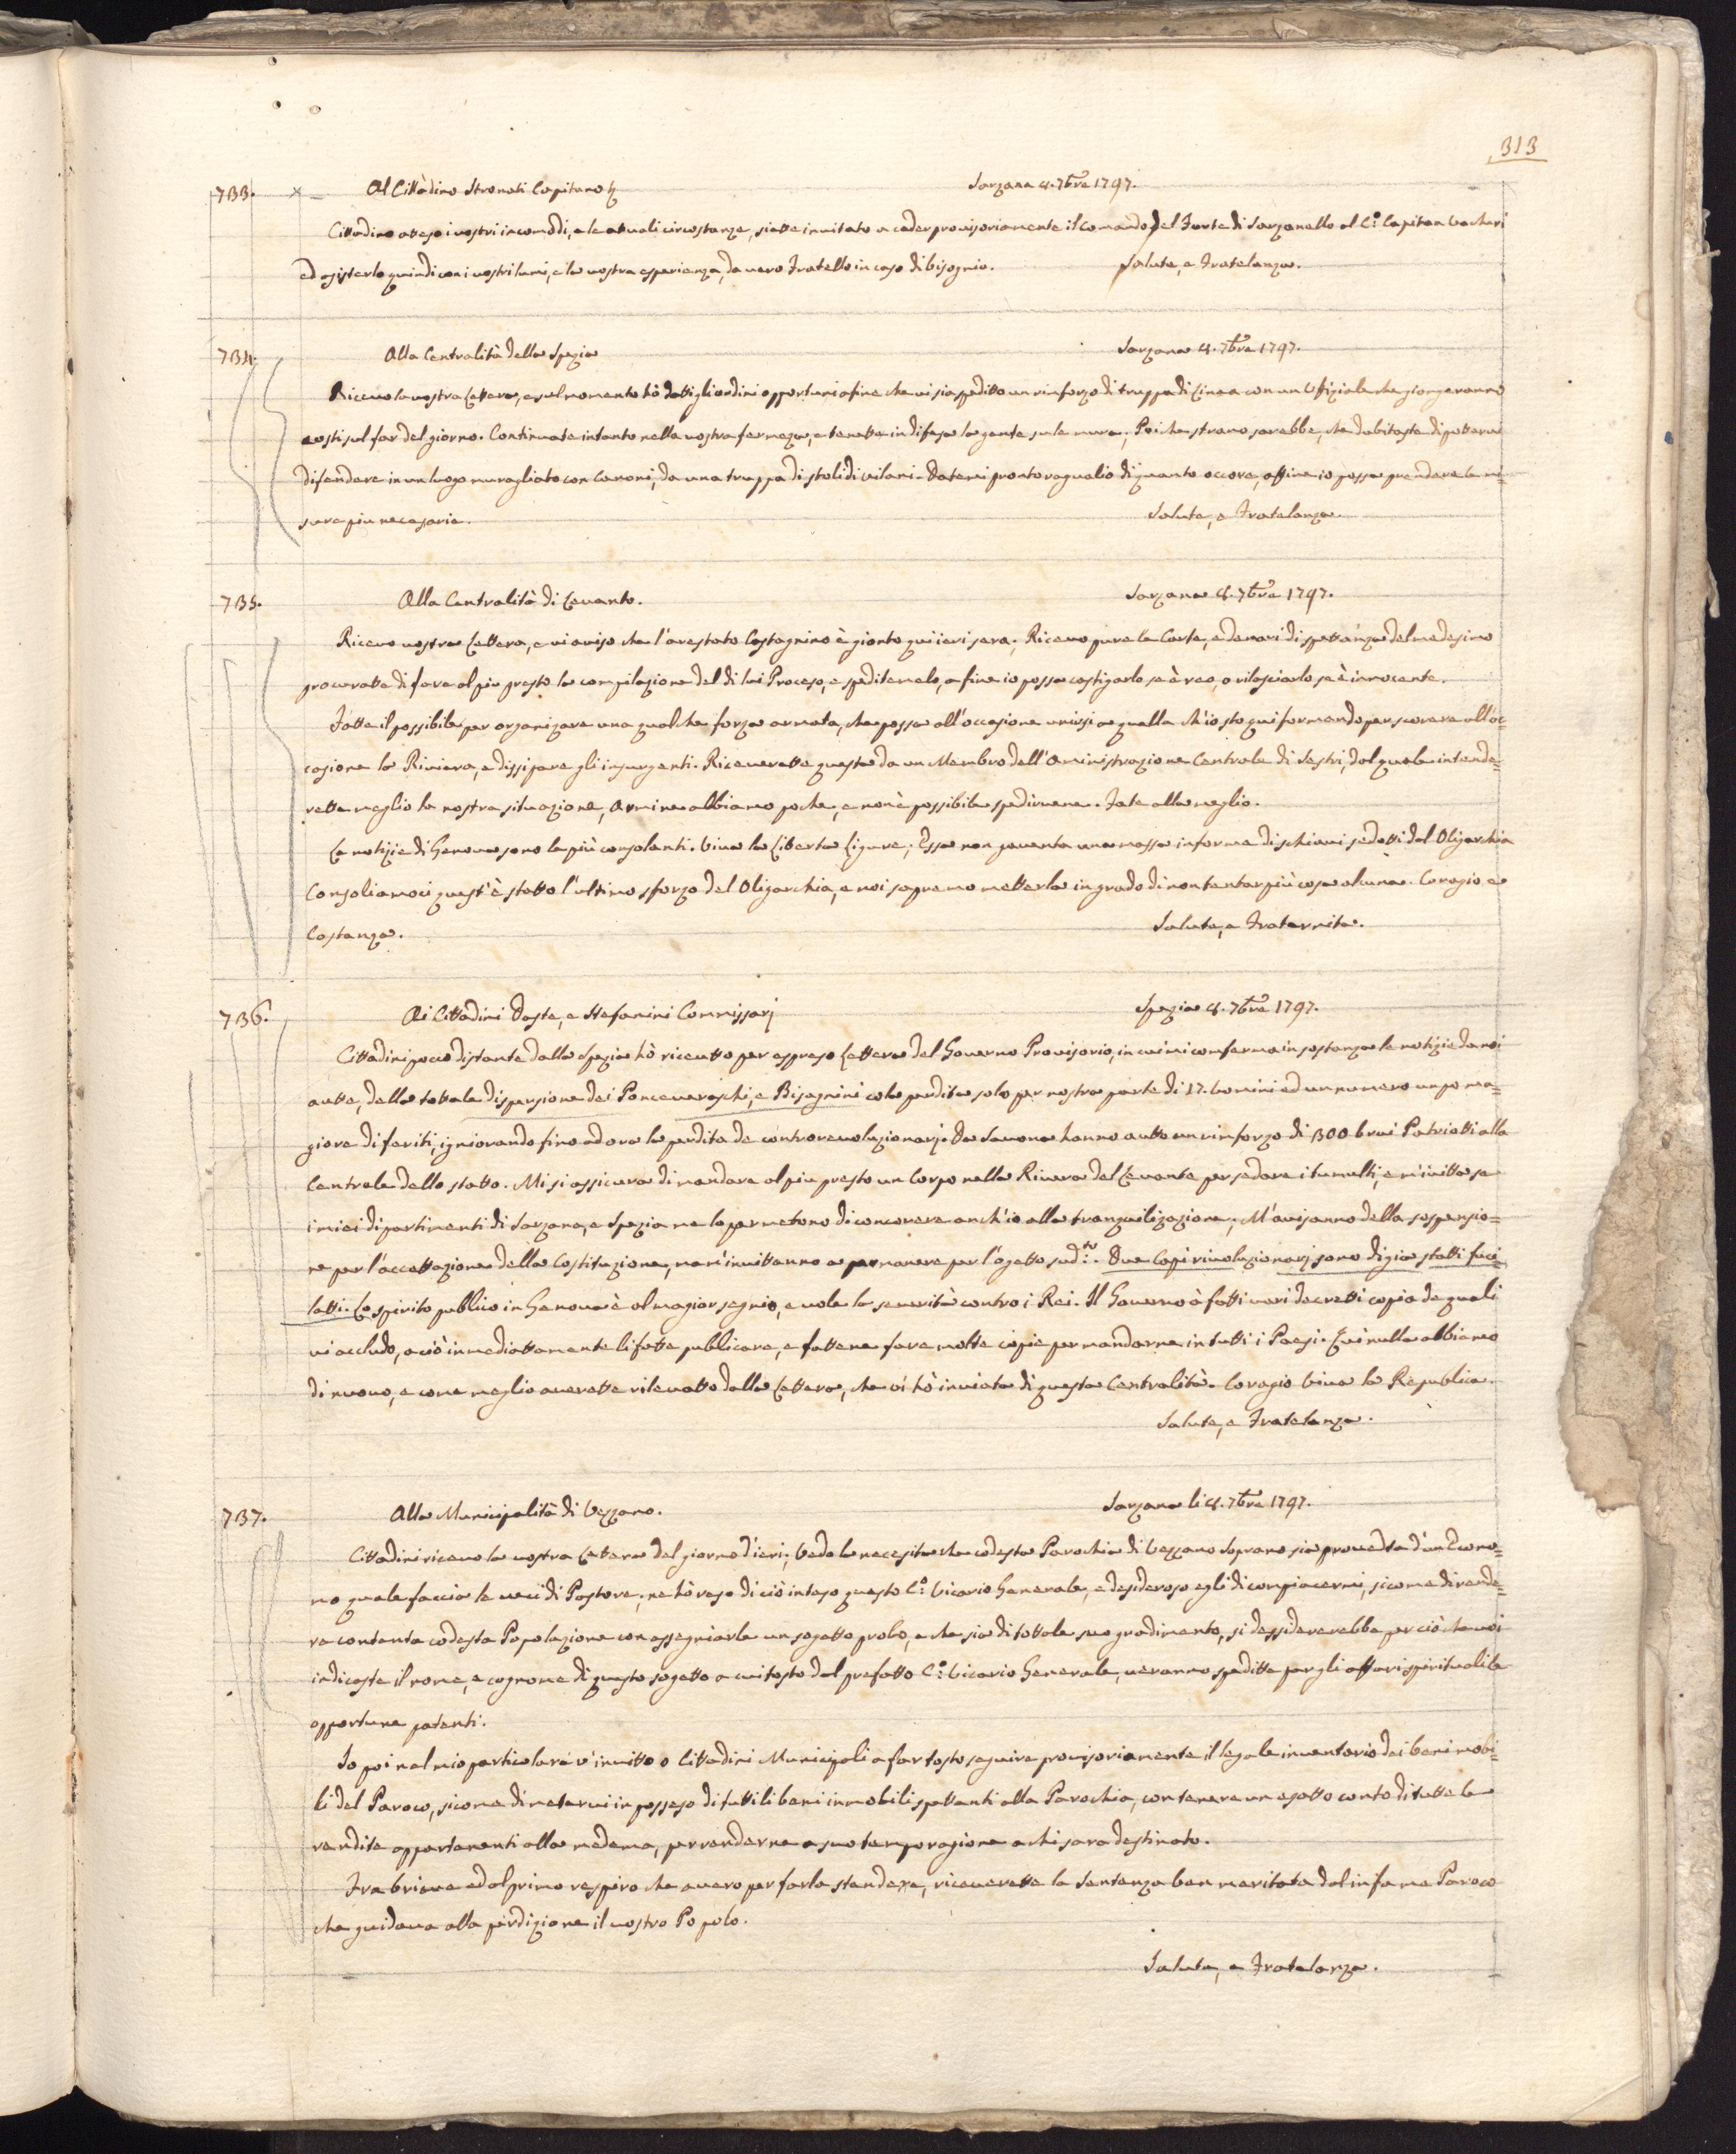 313
733. × Al Cittàdino Stronati Capitano Sarzana 4. 7bre 1797.
Cittadino atteso i vostri incomodi, e le attuali circostanze, siatte invitato a ceder provisoriamente il Comando del Forte di Sarzanello al C:o Capitan Vacheri
ed asisterlo quindi con i vostri lumi, e la vostra esperienza, da vero Fratello in caso di bisognio. Salute, e Fratelanza.
734. Alla Centralità della Spezia Sarzana 4. 7bre 1797.
Ricevo la vostra Lettera, e sul momento hò datti gli ordini opportuni afine che vi sia spedito un rinforzo di truppa di Linea con un Uffiziale che giongeranno
costi sul far del giorno. Continuate intanto nella vostra fermeza, e tenette in difesa la gente su le mura; Poiche strano sarebbe, che dubitaste di potervi
difendere in un luogo muragliato con Canoni, da una truppa di stolidi vilani. Datemi pronto raguaglio di quanto occore, affine io possa prendere le mi=
sure piu necesarie. Salute, e Fratelanza.
735. Alla Centralità di Levanto. Sarzana 4. 7bre 1797.
Ricevo vostra Lettera, e vi aviso che l'arestato Castagnino è gionto qui ieri sera; Ricevo pure le Carte, e denari di spettanza del medesimo
procuratte di fare al piu presto la compilazione del di lui Proceso, e speditemelo, a fine io possa castigarlo se è reo, o rilasciarlo se è innocente.
Fatte il possibile per organizare una qualche forza armata, che possa all'occasione unirsi a quella ch'io sto qui formando per scorere all'oc
casione la Riviera, e dissipare gli insurgenti. Riceverette questa da un Membro dell'Aministrazione Centrale di Sestri, dal quale intende=
rette meglio la nostra situazione, Armi ne abbiamo poche, e non è possibile spedirvene. Fate alla meglio.
Le notizie di Genova sono le più consolanti. Viva la Libertà Ligure; Essa non paventa una massa informe di schiavi sedotti dal Oligarchia
Consoliamoci quest'è statto l'ultimo sforzo del Oligarchia, e noi sapremo metterla in grado di non tentar più cosa alcuna. Coragio e
Costanza. Salute, e Fraternita.
736. Ai Cittàdini Doste, e Stefanini Commissarj Spezia 4. 7bre 1797.
Cittadini poco distante dalla Spezia hò riceutto per espreso Lettera del Governo Provisorio, in cui mi conferma in sostanza le notizie da noi
autte, della tottale dispersione dei Ponceveraschi, e Bisagnini colla perdita solo per nostra parte di 17. uomini ed un numero un po ma=
giore di feriti, igniorando fino ad ora la perdita de controrevoluzionarj. Da Savona hanno autto un rinforzo di 1300 bravi Patriotti alla
Centrale dello statto. Mi si assicura di mandare al piu presto un Corpo nella Rivera del Levante per sedare i tumulti, e m'invitta se
i miei dipartimenti di Sarzana, e Spezia me lo permetono di concorere anch'io alla tranquilizazione; M'avisanno della sospensio=
ne per l'accettazione della Costituzione, ma m'invittanno a permanere per l'ogetto sud:to. Due Capi rivoluzionarj sono digia statti fuci=
latti. Lo spirito publico in Genova è al magior segnio, e vole la severità contro i Rei. Il Governo à fatti varj decretti copia de quali
vi accludo, aciò inmediattamente li fatte publicare, e fattene fare molte copie per mandarne in tutti i Paesi. Quì nulla abbiamo
di nuovo, e come meglio averette rilevatto dalla Lettera, che vi hò inviata di questa Centralità. Coragio Viva la Republica.
Salute, e Fratelanza.
737. Alla Municipalità di Vezzano. Sarzana li 4. 7bre 1797.
Cittadini ricevo la vostra Lettera del giorno d'ieri; Vedo la necesità che codesta Parochia di Vezzano Soprano sia proveduta d'un Econo=
mo quale faccia le veci di Pastore; ne hò reso di ciò inteso questo C:o Vicario Generale, e desideroso egli di compiacermi, sicome di rende=
re contenta codesta Popolazione con assegniarle un sogetto probo, e che sia di tottale suo gradimento, si dessidererebbe per ciò che voi
indicaste il nome, e cognome di questo sogetto a cui tosto dal prefatto C:o Vicario Generale, veranno speditte per gli affari spirituali le
opportune patenti.
Io poi nel mio particolare v'invitto o Cittadini Municipali a far tosto seguire provisoriamente il legale inventario dei beni mobi=
li del Paroco, sicome di metervi in posseso di tutti li beni inmobili spettanti alla Parochia, con tenere un esatto conto di tutte le
rendite appartenenti alla medema, per renderne a suo tempo ragione a chi sara destinato.
Fra brieve ed al primo respiro che avero per farla stendere, riceverette la sentenza ben meritata dal infame Paroco
che guidava alla perdizione il vostro Popolo.
Salute, e Fratelanza.